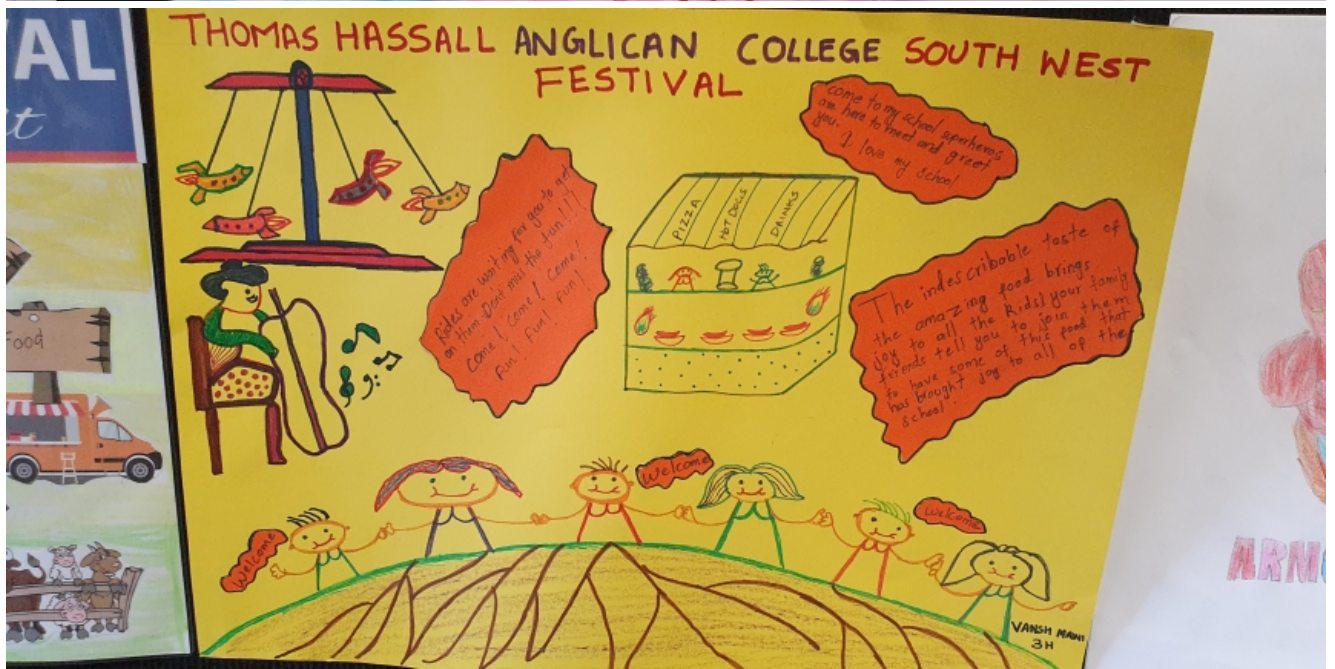 VAL
t
Food
THOMAS HASSALL ANGLICAN COLLEGE SOUTH WEST
FESTIVAL
come to my school superheros
are here to meet and greet
you.
I love my school
Rides are waiting for you to get
on them. Don't miss the fun!!!!
Come! Come! Come!
Fun! Fun! Fun!
PIZZA
HOT DOGS
DRINKS
The indescribable taste of
the amazing food brings
joy to all the kids! your family
friends tell you to join them
to have some of this food that
has brought joy to all of the
school.
Welcome
Welcome
Welcome
VANSH MAINI
3H
ARM